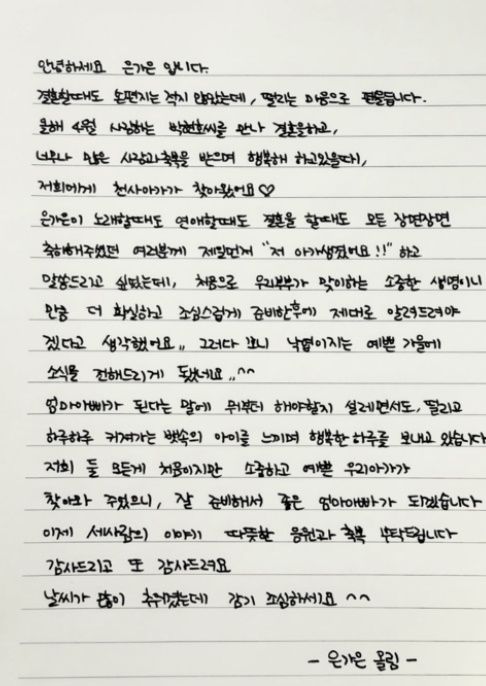 안녕하세요 은가은 입니다.
결혼할때도 손편지는 적지 않았는데, 떨리는 마음으로 펜을듭니다.
올해 4월 사랑하는 박현호씨를 만나 결혼을하고,
너무나 많은 사랑과축복을 받으며 행복해 하고있을때,
저희에게 천사아가가 찾아왔어요♡
은가은이 노래할때도 연애할때도 결혼을 할때도 모든 장면장면
축하해주셨던 여러분께 제일먼저 "저 아가생겼어요!!" 하고
말씀드리고 싶었는데, 처음으로 우리부부가 맞이하는 소중한 생명이니
만큼 더 확실하고 조심스럽게 준비한후에 제대로 알려드려야
겠다고 생각했어요,, 그러다 보니 낙엽이지는 예쁜 가을에
소식을 전해드리게 됐네요,,^^
엄마아빠가 된다는 말에 뭐부터 해야할지 설레면서도, 떨리고
하루하루 커져가는 뱃속의 아이를 느끼며 행복한 하루를 보내고 있습니다
저희 둘 모든게 처음이지만 소중하고 예쁜 우리아가가
찾아와 주었으니, 잘 준비해서 좋은 엄마아빠가 되겠습니다
이제 세사람의 이야기 따뜻한 응원과 축복 부탁드립니다
감사드리고 또 감사드려요
날씨가 많이 추워졌는데 감기 조심하세요 ^^
- 은가은 올림 -